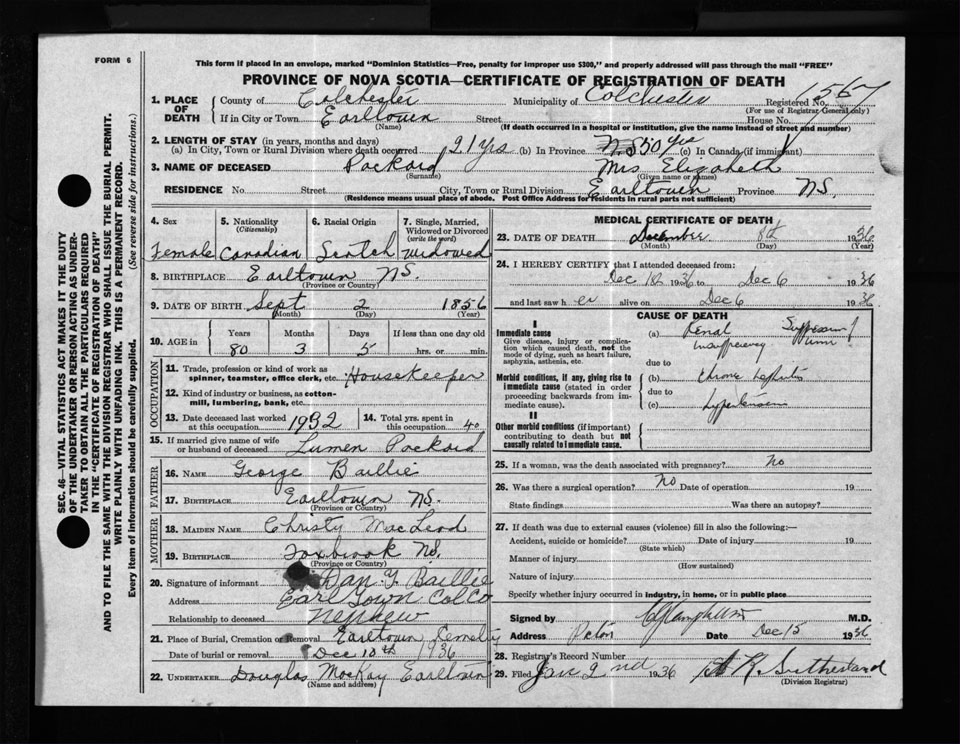 FORM 6
This form if placed in an envelope, marked "Dominion Statistics—Free, penalty for improper use $300," and properly addressed will pass through the mail "FREE"
PROVINCE OF NOVA SCOTIA—CERTIFICATE OF REGISTRATION OF DEATH
SEC. 46—VITAL STATISTICS ACT MAKES IT THE DUTY
OF THE UNDERTAKER OR PERSON ACTING AS UNDER-
TAKER TO OBTAIN ALL THE PARTICULARS REQUIRED
IN THE "CERTIFICATE OF REGISTRATION OF DEATH"
AND TO FILE THE SAME WITH THE DIVISION REGISTRAR WHO SHALL ISSUE THE BURIAL PERMIT.
WRITE PLAINLY WITH UNFADING INK. THIS IS A PERMANENT RECORD.
Every item of information should be carefully supplied. (See reverse side for instructions.)
1. PLACE OF DEATH County of Colchester Municipality of Colchester Registered No. 1567
(For use of Registrar General only)
If in City or Town Earltown Street House No.
(Name) (If death occurred in a hospital or institution, give the name instead of street and number)
2. LENGTH OF STAY (in years, months and days)
(a) In City, Town or Rural Division where death occurred 21 yrs (b) In Province N.S. 50 yrs (c) In Canada (if immigrant)
3. NAME OF DECEASED Packard Mrs Elizabeth
(Surname) (Given name or names)
RESIDENCE No. Street City, Town or Rural Division Earltown Province N.S.
(Residence means usual place of abode. Post Office Address for residents in rural parts not sufficient)
4. Sex 5. Nationality (Citizenship) 6. Racial Origin 7. Single, Married, Widowed or Divorced (write the word)
Female Canadian Scotch widowed
8. BIRTHPLACE Earltown N.S.
(Province or Country)
9. DATE OF BIRTH Sept 2 1856
(Month) (Day) (Year)
10. AGE in Years Months Days If less than one day old
80 3 5 hrs. or min.
OCCUPATION
11. Trade, profession or kind of work as spinner, teamster, office clerk, etc. Housekeeper
12. Kind of industry or business, as cotton-mill, lumbering, bank, etc.
13. Date deceased last worked at this occupation 1932 14. Total yrs. spent in this occupation 40
15. If married give name of wife or husband of deceased Lumen Packard
FATHER
16. NAME George Baillie
17. BIRTHPLACE Earltown N.S.
(Province or Country)
MOTHER
18. MAIDEN NAME Christy MacLeod
19. BIRTHPLACE Foxbrook N.S.
(Province or Country)
20. Signature of informant Dan Y. Baillie
Address Earltown Col Co
Relationship to deceased nephew
21. Place of Burial, Cremation or Removal Earltown
Date of burial or removal Dec 10th 1936
22. UNDERTAKER Douglas MacKay Earltown
(Name and address)
MEDICAL CERTIFICATE OF DEATH
23. DATE OF DEATH December 8th 1936
(Month) (Day) (Year)
24. I HEREBY CERTIFY that I attended deceased from:
Dec 1936 to Dec 6 1936
and last saw h er alive on Dec 6 1936
CAUSE OF DEATH
I
Immediate cause
Give disease, injury or complication which caused death, not the mode of dying, such as heart failure, asphyxia, asthenia, etc.
(a) Renal insufficiency Suppression of urine
due to
Morbid conditions, if any, giving rise to immediate cause (stated in order proceeding backwards from immediate cause).
(b) Chronic Nephritis
due to
(c) hypertension
II
Other morbid conditions (if important) contributing to death but not causally related to immediate cause.
25. If a woman, was the death associated with pregnancy? No
26. Was there a surgical operation? No Date of operation 19
State findings Was there an autopsy?
27. If death was due to external causes (violence) fill in also the following:—
Accident, suicide or homicide? Date of injury 19
(State which)
Manner of injury
(How sustained)
Nature of injury
Specify whether injury occurred in industry, in home, or in public place
Signed by M.D.
Address Pictou Date Dec 15 1936
28. Registrar's Record Number
29. Filed Jan 2nd 1936 Sutherland
(Division Registrar)